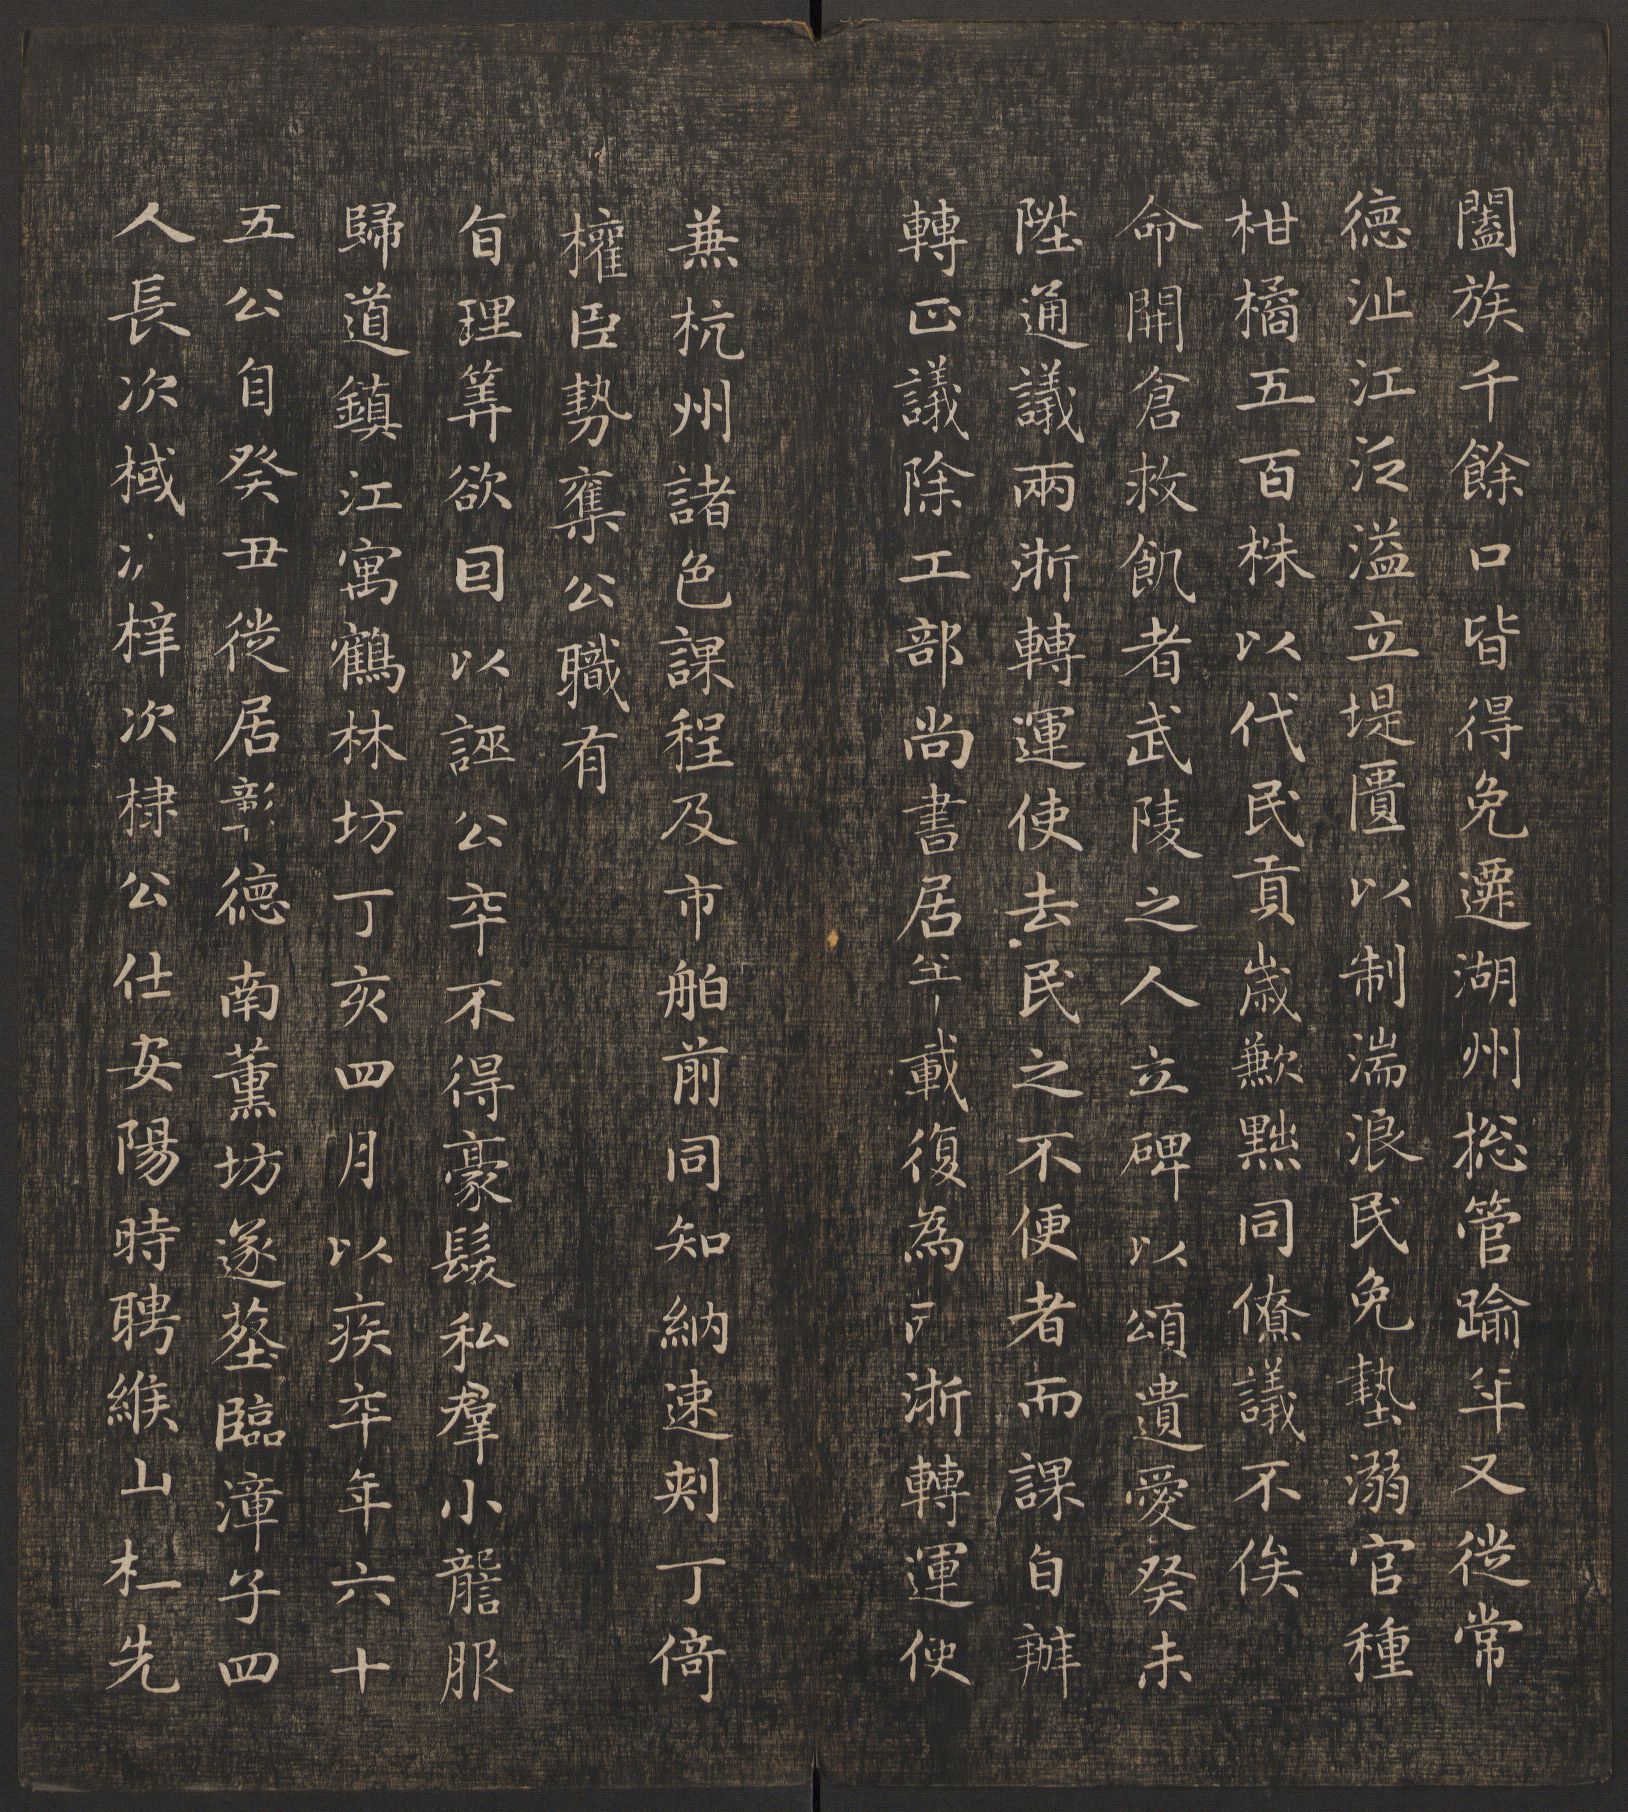 闔族千餘口皆得免遷湖州揔管踰年又從常
德沚江泛溢立堤匱以制湍浪民免墊溺官種
柑橘五百株以代民貢歲歉黙同僚議不俟
命開倉救飢者武陵之人立碑以頌遺愛癸未
陞通議兩浙轉運使去民之不便者而課自辦
轉正議除工部尚書居半載復為兩浙轉運使
兼杭州諸色課程及市舶前同知納速剌丁倚
權臣勢奪公職有
旨理筭欲因以誣公卒不得豪髮私羣小讋服
歸道鎮江寓鶴林坊丁亥四月以疾卒年六十
五公自癸丑從居彰德南薰坊遂塟臨漳子四
人長次棫次梓次棣公仕安陽時聘緱山杜先